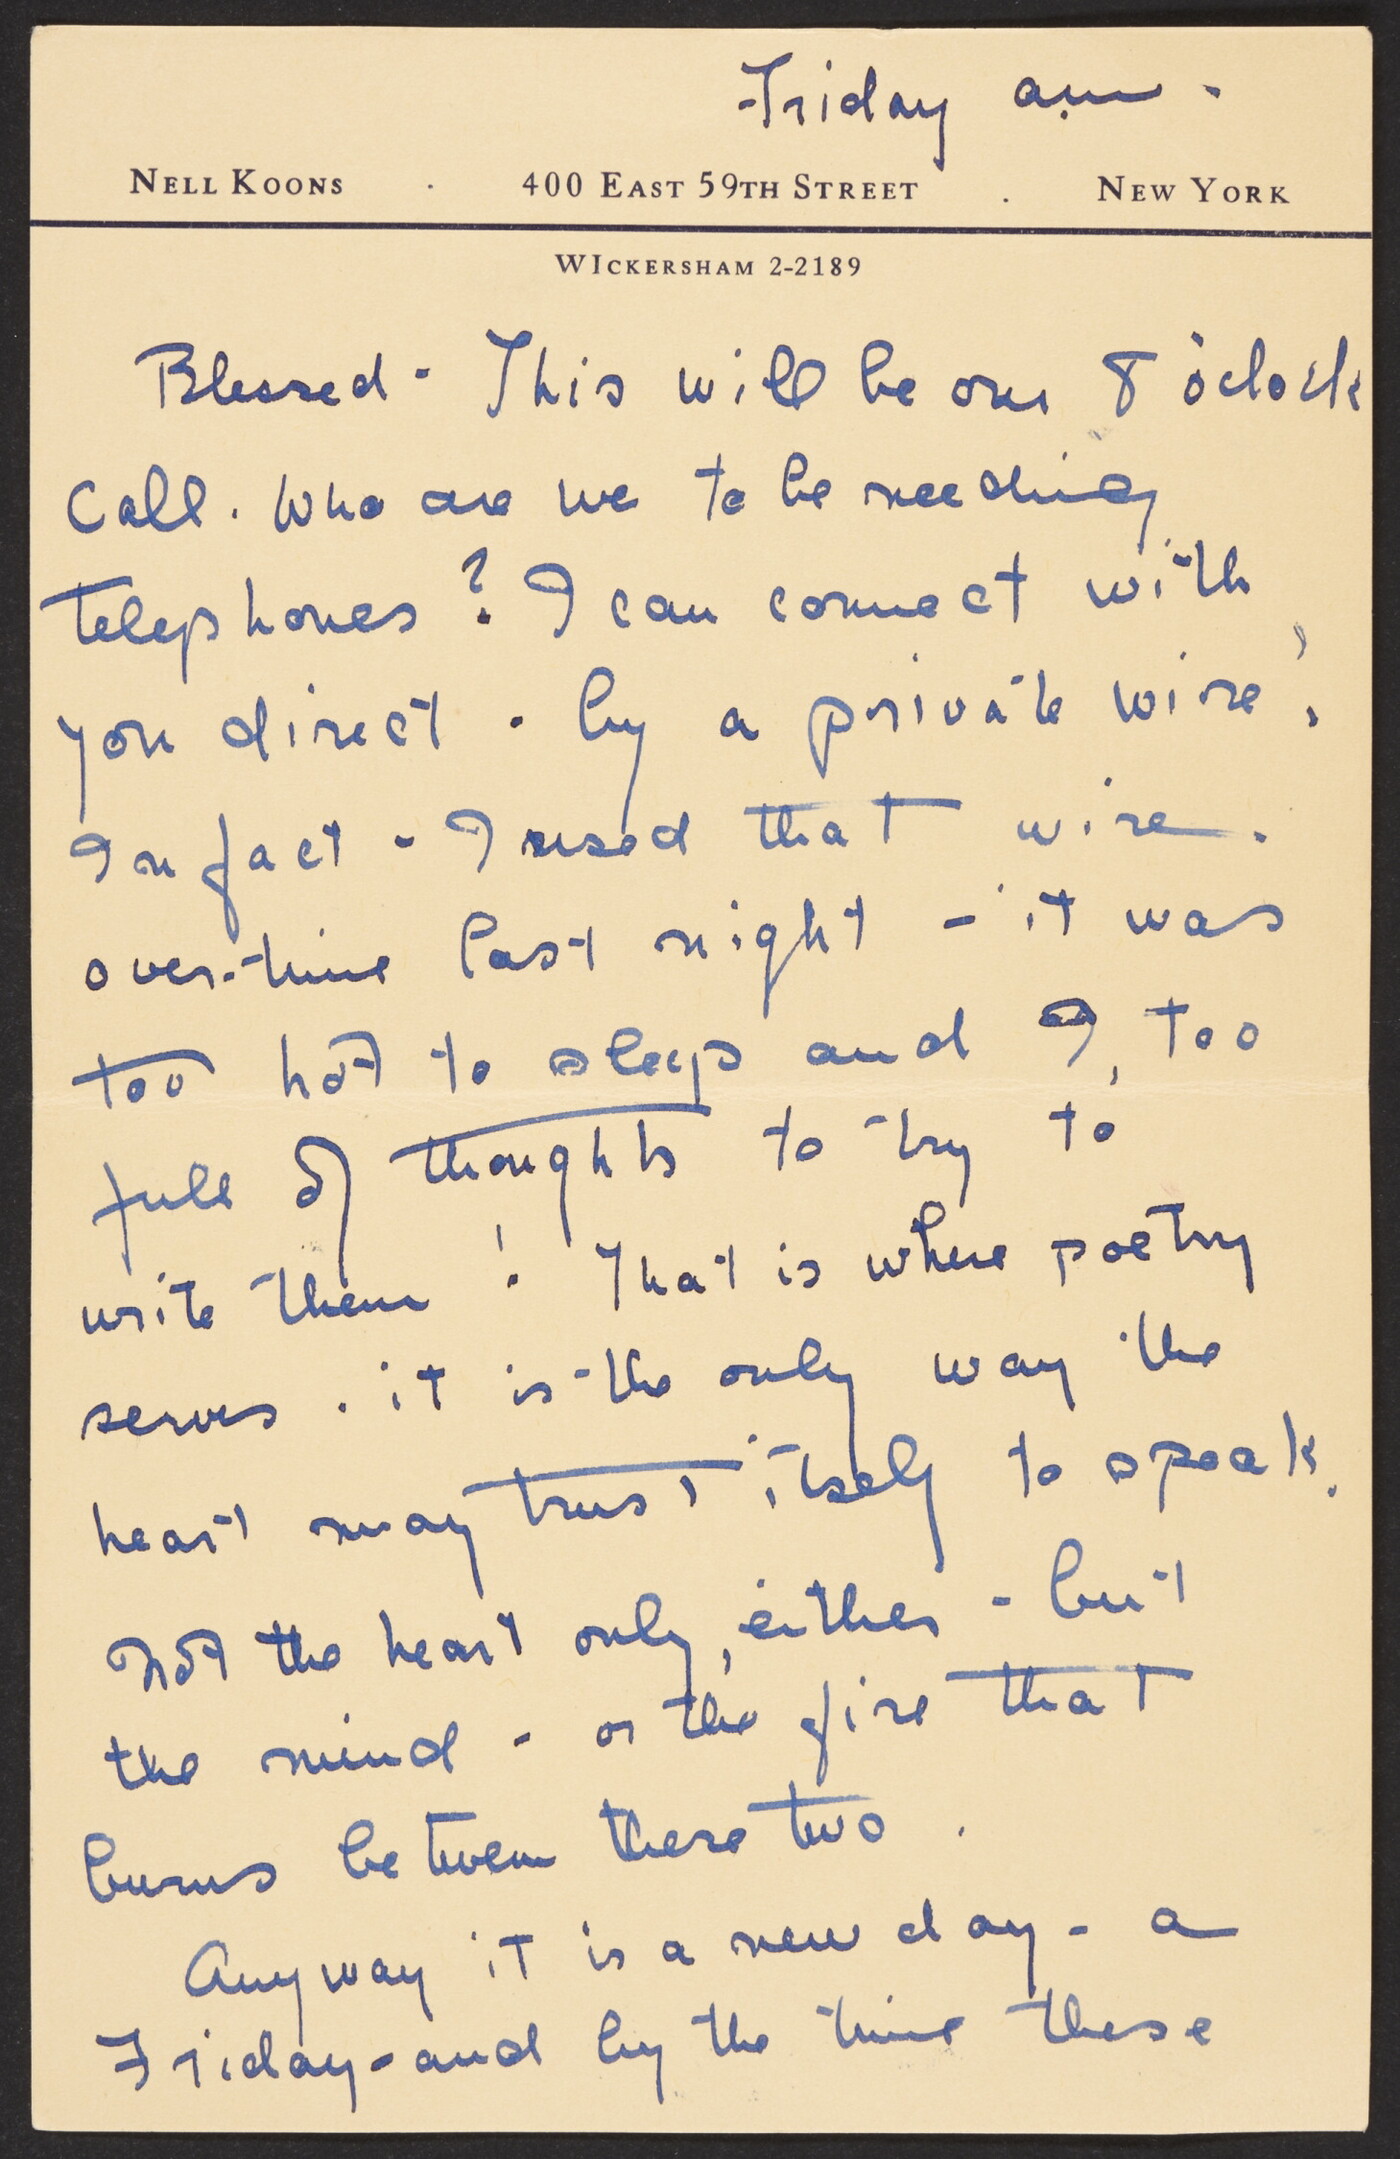 Friday am -
NELL KOONS . 400 EAST 59TH STREET . NEW YORK
WICKERSHAM 2-2189
Blessed - This will be our 8 o'clock
call. Who are we to be needing
telephones? I can connect with
you direct - by a private wire!
In fact - I used that wire
over-time last night - it was
too hot to sleep and I, too
full of thoughts to try to
write them! That is where poetry
serves. it is the only way the
heart may trust itself to speak.
Not the heart only, either - but
the mind - or the fire that
burns between these two.
Anyway it is a new day - a
Friday - and by the time these